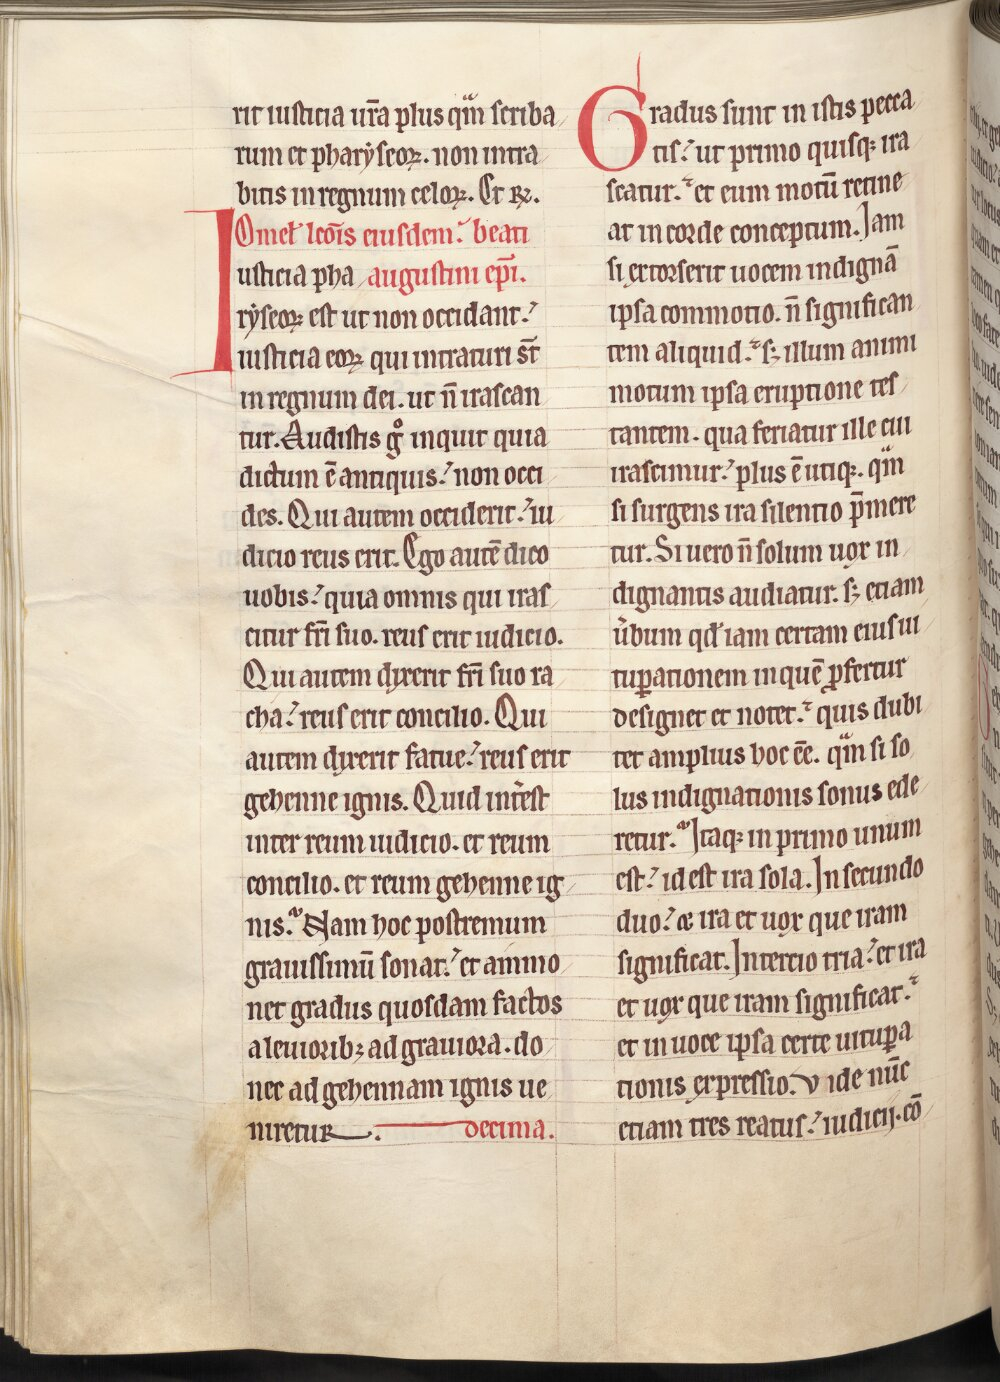 rit iusticia ur̄a plus qm̄ scriba
rum et pharẏseoꝝ. non intra
bitis in regnum celoꝝ. Et ꝶ.
Omel' lc̄oīs eiusdem. beati
Iusticia pha augustini ep̄i.
rẏseoꝝ est ut non occidant.
iusticia eoꝝ qui intraturi st̄
in regnum dei. ut n̄ irascan
tur. Audistis gͦ inquit quia
dictum ē antiquis. non occi
des. Qui autem occiderit. iu
dicio reus erit. Ego autē dico
uobis. quia omnis qui iras
citur fr̄i suo. reus erit iudicio.
Qui autem dixerit fr̄i suo ra
cha. reus erit concilio. Qui
autem dixerit fatue. reus erit
gehenne ignis. Quid int̄est
inter reum iudicio. et reum
concilio. et reum gehenne ig
nis. Nam hoc postremum
grauissimū sonat. et ammo
net gradus quosdam factos
a leuioribꝫ ad grauiora. do
nec ad gehennam ignis ue
niretur. decima.
Gradus sunt in istis pecca
tis. ut primo quisqꝫ ira
scatur. et eum motū retine
at in corde conceptum. Iam
si extorserit uocem indignā
ipsa commotio. n̄ significan
tem aliquid. sꝫ illum animi
motum ipsa eruptione tes
tantem. qua feriatur ille cui
irascimur. plus ē utiqꝫ. qm̄
si surgens ira silentio p̄mere
tur. Si uero n̄ solum uox in
dignantis audiatur. sꝫ etiam
ùbum qd̄ iam certam eius ui
tuꝑationem in quē ꝓfertur
designet et notet. quis dubi
tet amplius hoc eē. qm̄ si so
lus indignationis sonus ede
retur. Itaqꝫ in primo unum
est. id est ira sola. In secundo
duo. & ira et uox que iram
significat. In tercio tria. et ira
et uox que iram significat.
et in uoce ipsa certe uituꝑa
tionis expressio. Vide nūc
etiam tres reatus. iudicij. cō